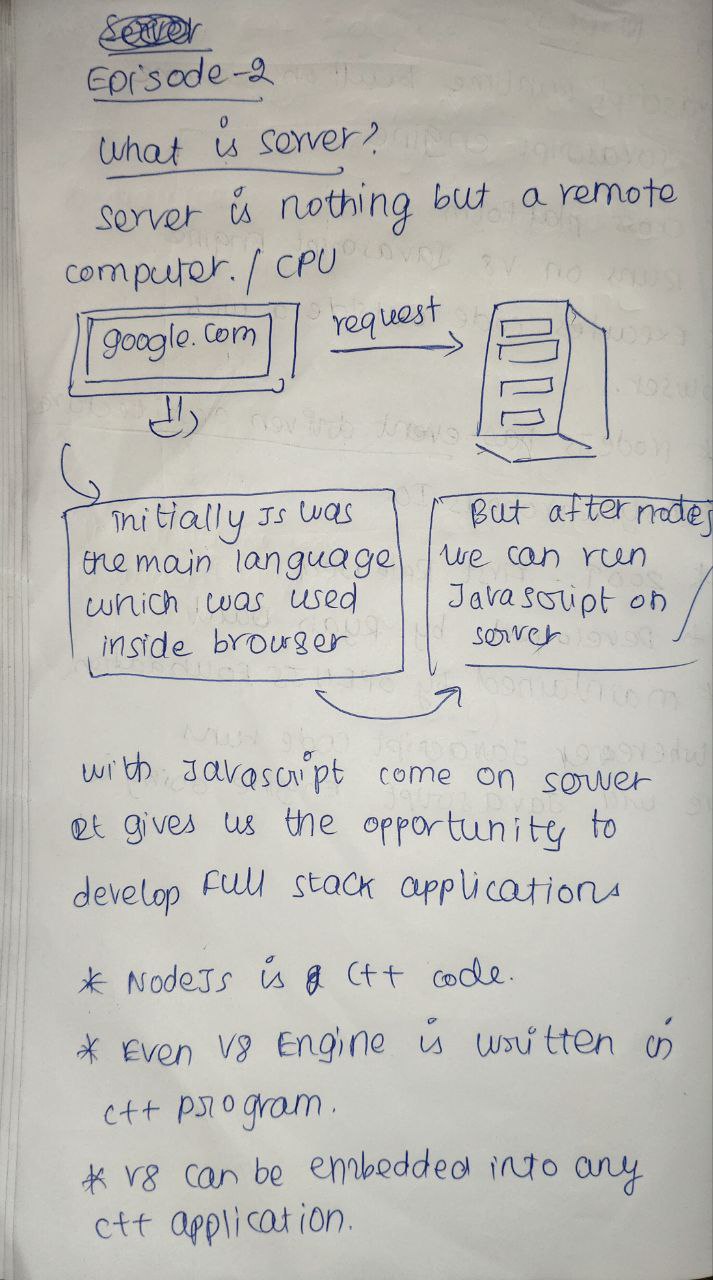 Server
Episode-2
What is server?
server is nothing but a remote
computer. / CPU
google.com
request
initially Js was
the main language
which was used
inside browser
But after nodejs
we can run
Javascript on
server
with Javascript come on server
it gives us the opportunity to
develop Full stack applications
* NodeJs is C++ code.
* Even V8 Engine is written in
C++ program.
* V8 can be embedded into any
C++ application.